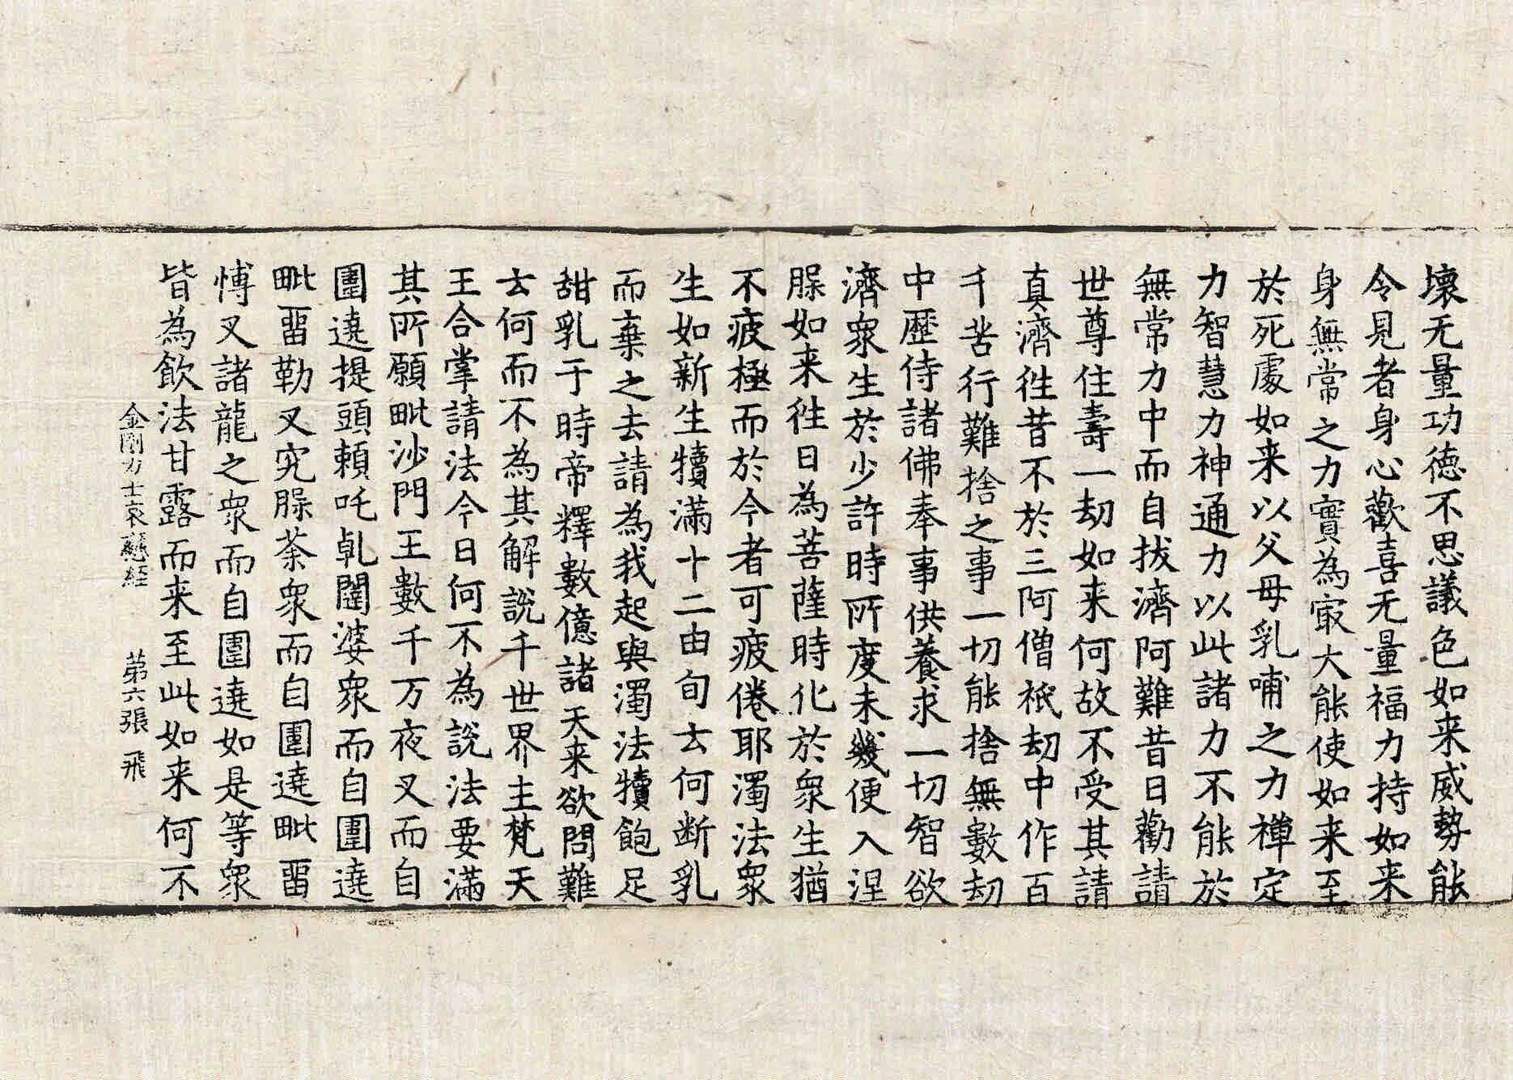 壞无量功德不思議色如来威勢能
令見者身心歡喜无量福力持如来
身無常之力實為㝡大能使如来至
於死處如来以父母乳哺之力禪定
力智慧力神通力以此諸力不能於
無常力中而自拔濟阿難昔日勸請
世尊住壽一劫如来何故不受其請
真濟徃昔不於三阿僧祇劫中作百
千苦行難捨之事一切能捨無數劫
中歷侍諸佛奉事供養求一切智欲
濟衆生於少許時所度未幾便入涅
𦙶如来徃日為菩薩時化於衆生猶
不疲極而於今者可疲倦耶濁法衆
生如新生犢滿十二由旬去何断乳
而棄之去請為我起與濁法犢飽足
甜乳于時帝釋數億諸天来欲問難
去何而不為其解説千世界主梵天
王合掌請法今日何不為説法要滿
其所願毗沙門王數千万夜叉而自
圍遶提頭頼吒乹闥婆衆而自圍遶
毗畱勒叉究𦙶荼衆而自圍遶毗畱
愽叉諸龍之衆而自圍遶如是等衆
皆為飲法甘露而来至此如来何不
金剛力士哀戀経 第六張 飛